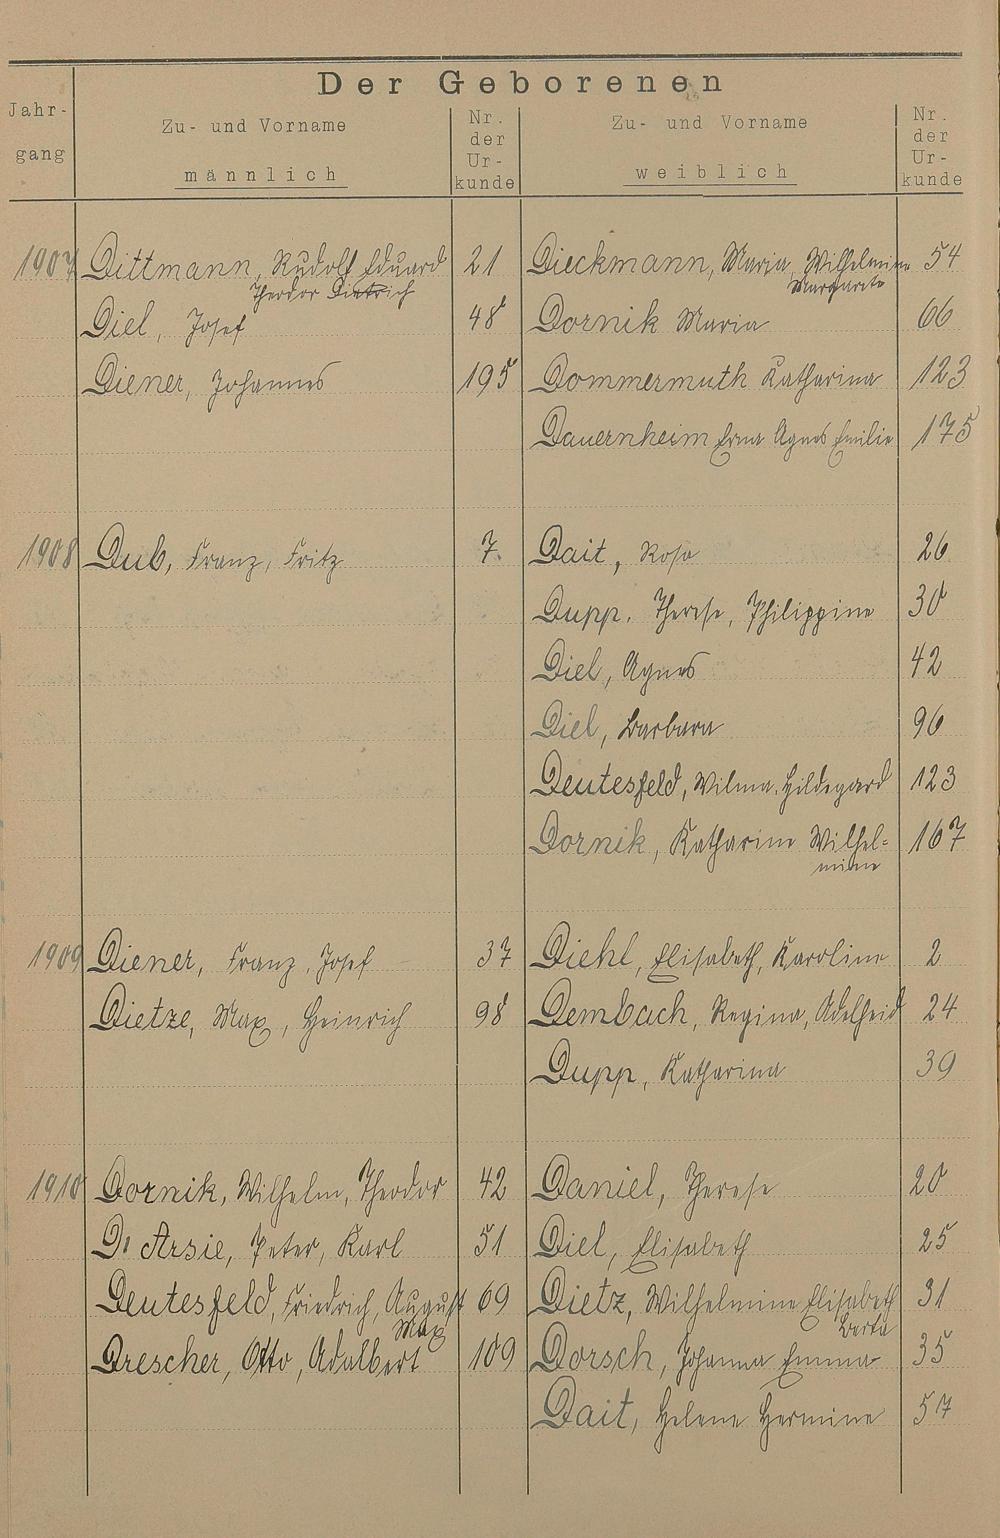 Der Geborenen
Jahr-
gang
Zu- und Vorname
männlich
Nr.
der
Ur-
kunde
Zu- und Vorname
weiblich
Nr.
der
Ur-
kunde
1907 Dittmann, Rudolf Eduard 21 Dieckmann, Maria, Wilhelmine 54
Theodor Dietrich Margarete
Diel, Josef 48 Dornik Maria 66
Diener, Johannes 195 Dommermuth Katharina 123
Dauernheim Erna Agnes Emilie 175
1908 Dub, Franz, Fritz 7. Dait, Rosa 26
Dupp. Therese, Philippine 30
Diel, Agnes 42
Diel, Barbara 96
Deutesfeld, Wilma. Hildegard 123
Dornik, Katharine Wilhel= 167
mine
1909 Diener, Franz, Josef 37 Diehl, Elisabeth, Karoline 2
Dietze, Max, Heinrich 98 Dembach, Regina, Adelheid 24
Dupp, Katharina 39
1910 Dornik, Wilhelm, Theodor 42 Daniel, Therese 20
D' Arsie, Peter, Karl 51 Diel, Elisabeth 25
Deutesfeld, Friedrich, August 69 Dietz, Wilhelmine Elisabeth 31
Max Berta
Drescher, Otto, Adalbert 109 Dorsch, Johanna Emma 35
Dait, Helene Hermine 57